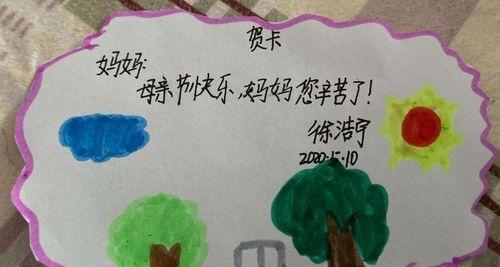 贺卡
妈妈:
母亲节快乐,妈妈您辛苦了!
徐浩宁
2020.5.10